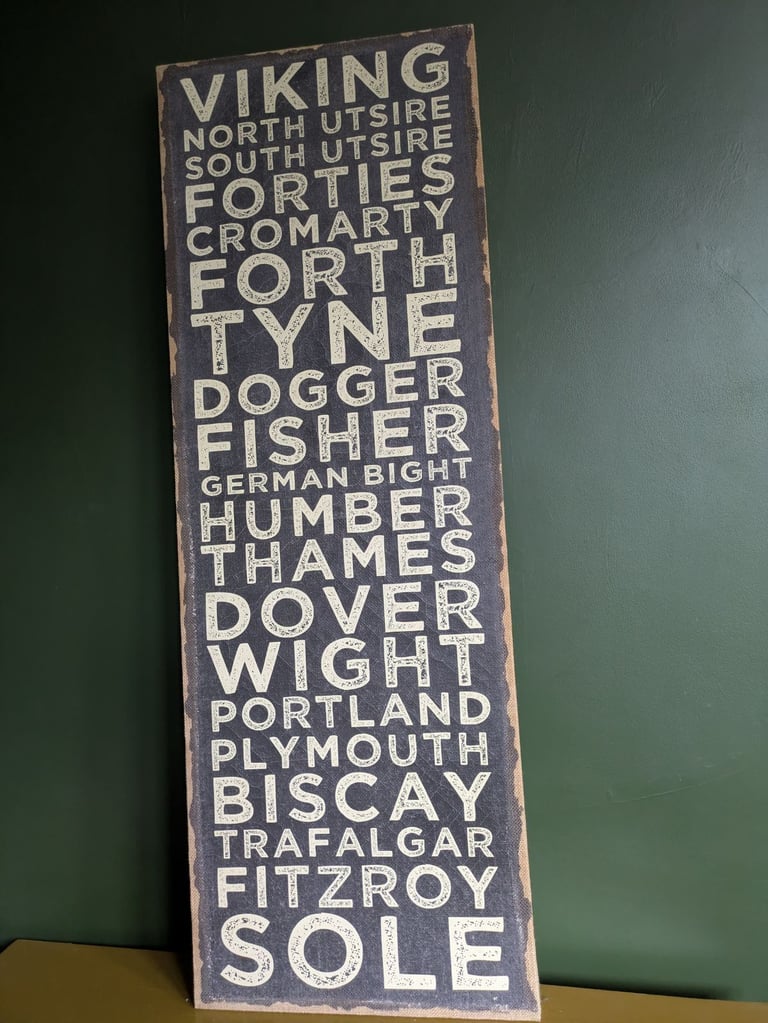 VIKING
NORTH UTSIRE
SOUTH UTSIRE
FORTIES
CROMARTY
FORTH
TYNE
DOGGER
FISHER
GERMAN BIGHT
HUMBER
THAMES
DOVER
WIGHT
PORTLAND
PLYMOUTH
BISCAY
TRAFALGAR
FITZROY
SOLE